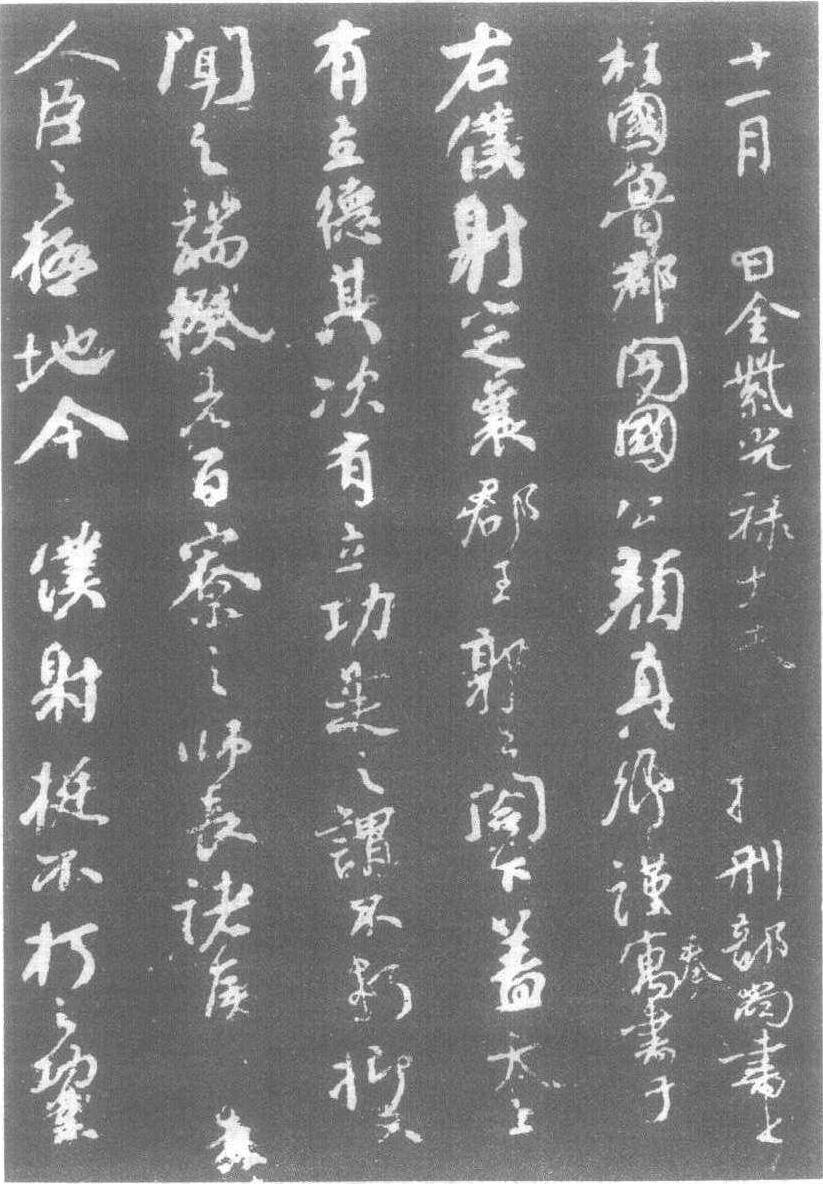 十一月 日金紫光禄大夫 刑部尚書上
柱國魯郡開國公顏真卿謹奉寓書于
右僕射定襄郡王郭公閤下蓋太上
有立德其次有立功是之謂不朽抑又
聞之端揆者百寮之師長諸侯 者
人臣之極地今 僕射挺不朽之功業